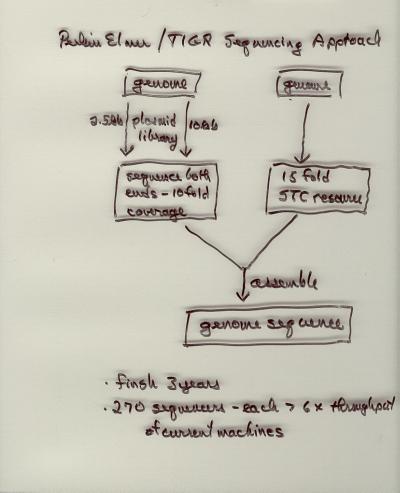 Perkin Elmer / TIGR Sequencing Approach
genome
genome
2.5kb plasmid 10kb
library
sequence both
ends - 10 fold
coverage
15 fold
STC resource
assemble
genome sequence
· finish 3 years
· 270 sequencers - each > 6x throughput
of current machines